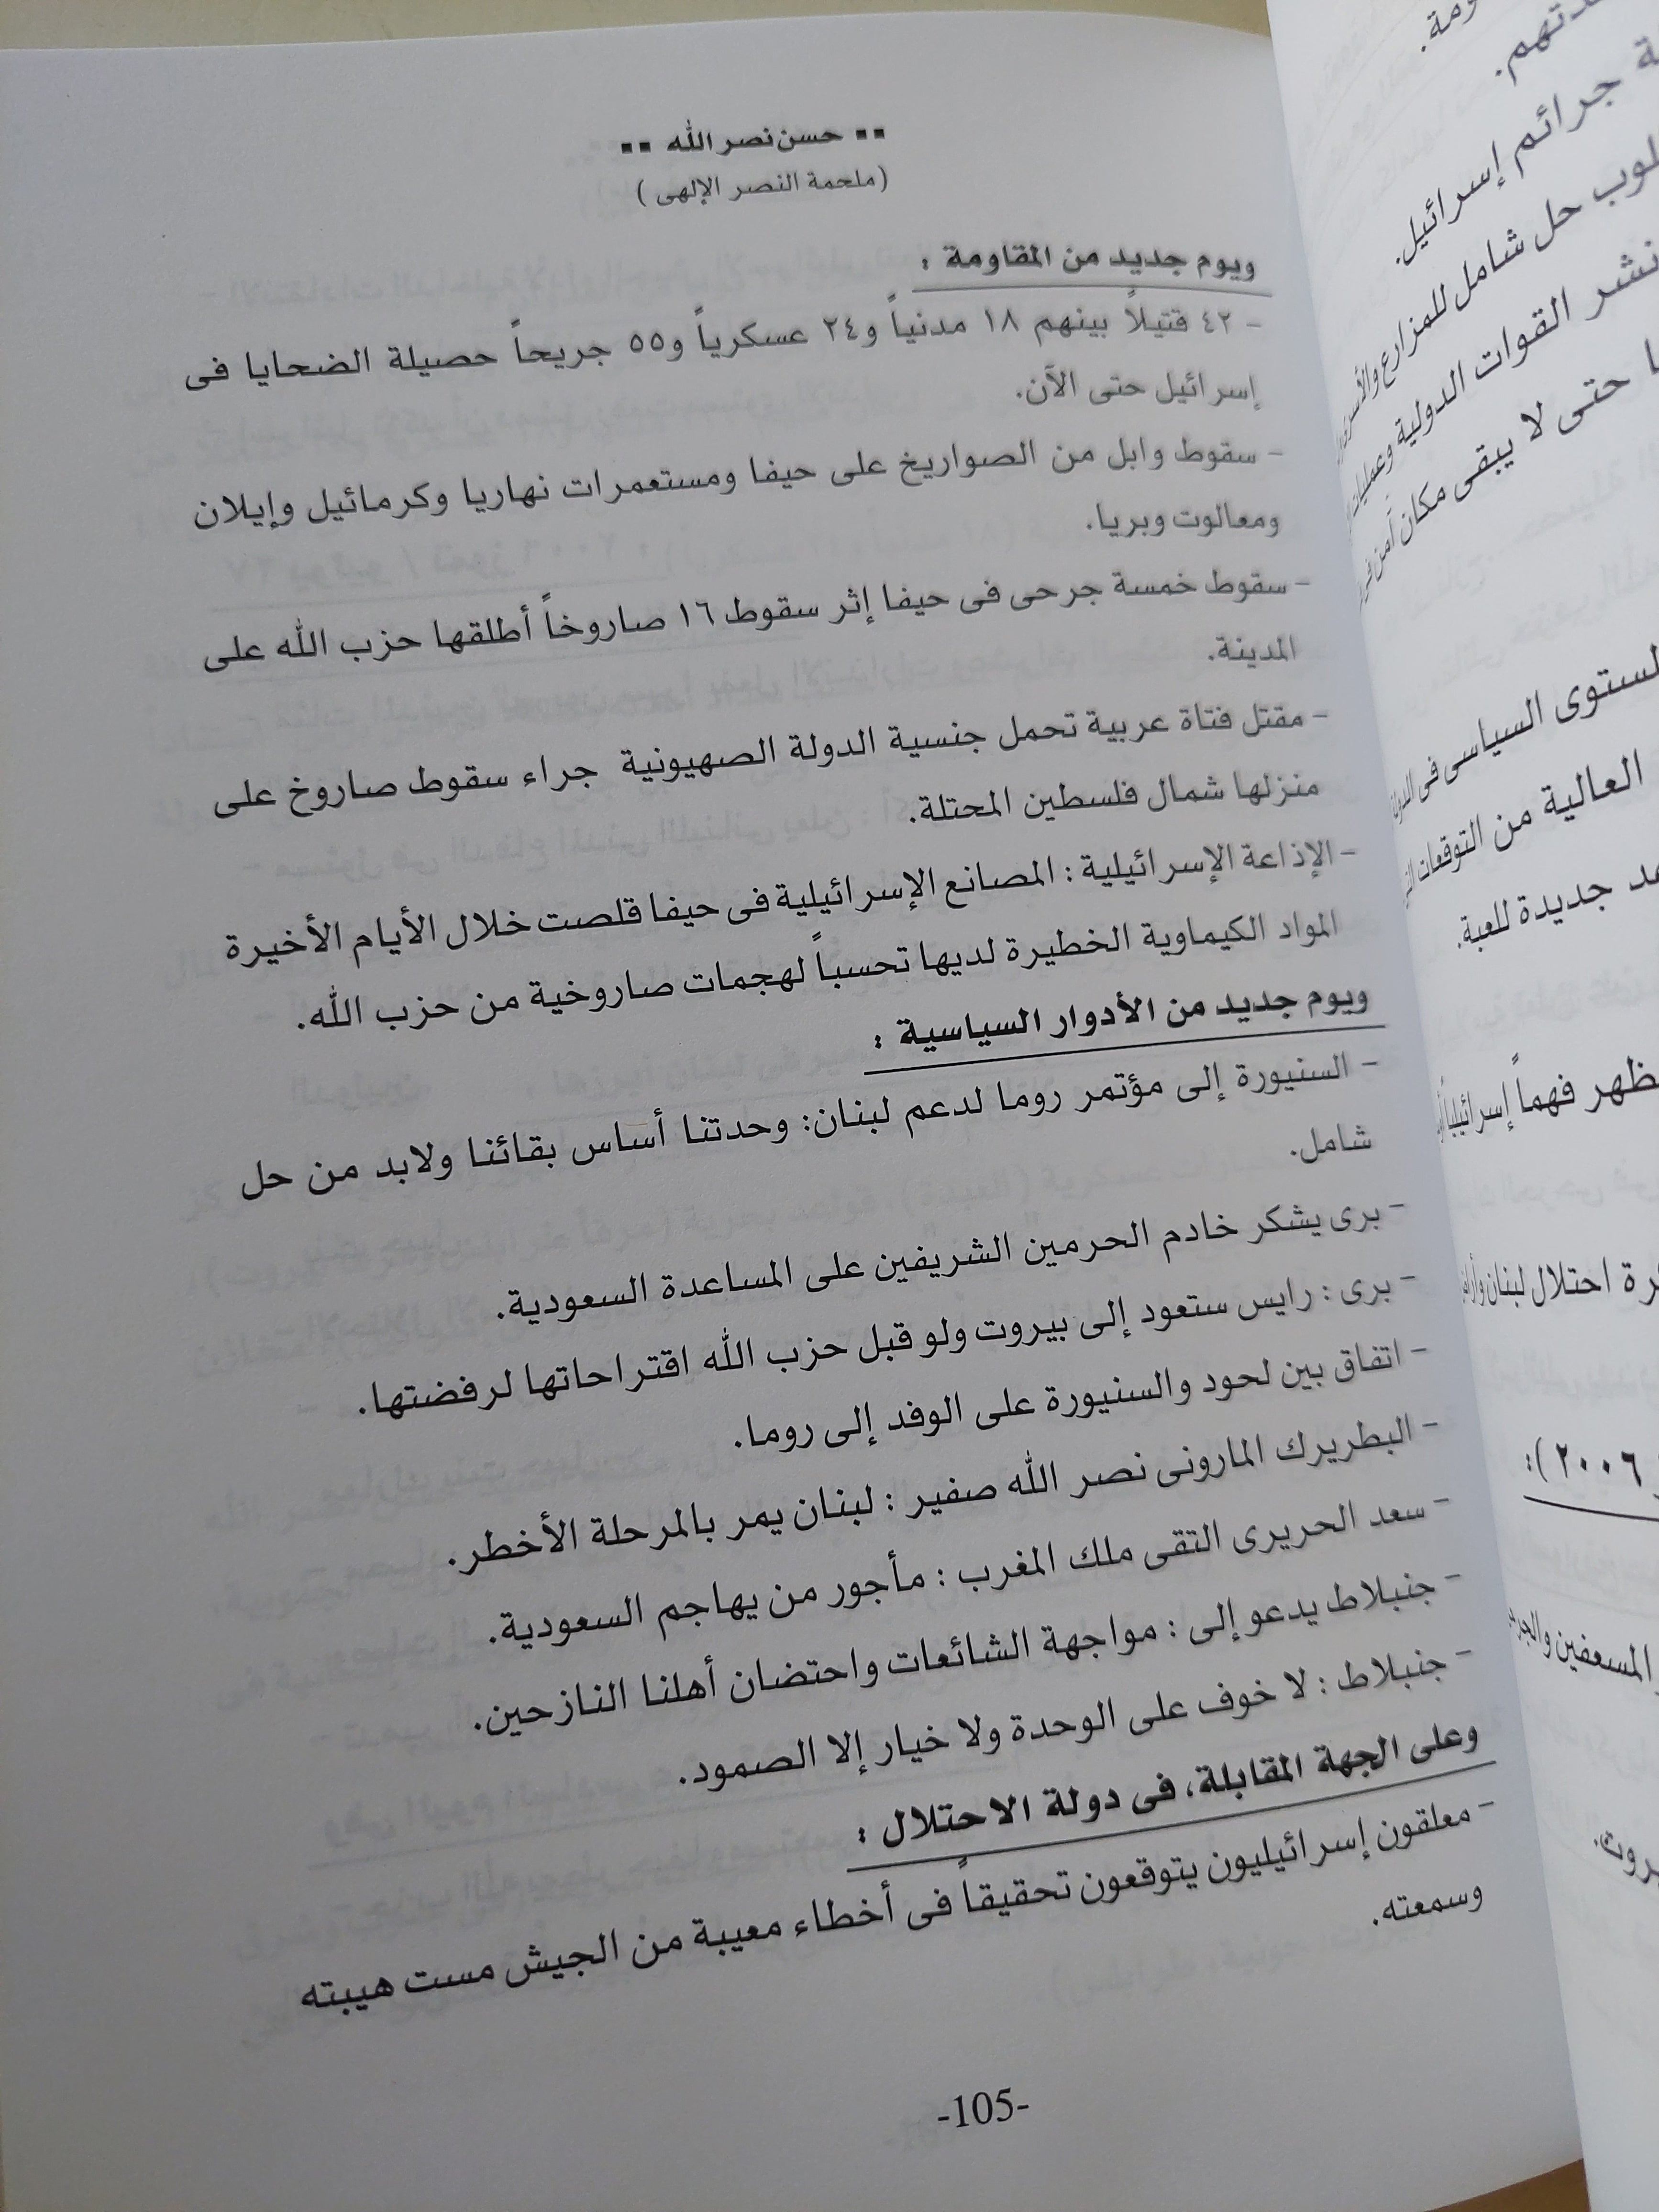 ▪▪ حسن نصر الله ▪▪
(ملحمة النصر الإلهى)
ويوم جديد من المقاومة :
- ٤٢ قتيلاً بينهم ١٨ مدنياً و٢٤ عسكرياً و٥٥ جريحاً حصيلة الضحايا فى
إسرائيل حتى الآن.
- سقوط وابل من الصواريخ على حيفا ومستعمرات نهاريا وكرمائيل وإيلان
ومعالوت وبريا.
- سقوط خمسة جرحى فى حيفا إثر سقوط ١٦ صاروخاً أطلقها حزب الله على
المدينة.
- مقتل فتاة عربية تحمل جنسية الدولة الصهيونية جراء سقوط صاروخ على
منزلها شمال فلسطين المحتلة.
- الإذاعة الإسرائيلية : المصانع الإسرائيلية فى حيفا قلصت خلال الأيام الأخيرة
المواد الكيماوية الخطيرة لديها تحسباً لهجمات صاروخية من حزب الله.
ويوم جديد من الأدوار السياسية :
- السنيورة إلى مؤتمر روما لدعم لبنان: وحدتنا أساس بقائنا ولابد من حل
شامل.
- برى يشكر خادم الحرمين الشريفين على المساعدة السعودية.
- برى : رايس ستعود إلى بيروت ولو قبل حزب الله اقتراحاتها لرفضتها.
- اتفاق بين لحود والسنيورة على الوفد إلى روما.
- البطريرك المارونى نصر الله صفير : لبنان يمر بالمرحلة الأخطر.
- سعد الحريرى التقى ملك المغرب : مأجور من يهاجم السعودية.
- جنبلاط يدعو إلى : مواجهة الشائعات واحتضان أهلنا النازحين.
- جنبلاط : لا خوف على الوحدة ولا خيار إلا الصمود.
وعلى الجهة المقابلة، فى دولة الاحتلال :
- معلقون إسرائيليون يتوقعون تحقيقاً فى أخطاء معيبة من الجيش مست هيبته
وسمعته.
-105-
جرائم إسرائيل.
حل شامل للمزارع
نشر القوات الدولية
حتى لا يبقى مكان آمن
السياسى فى
العالية من التوقعات
جديدة للعبة.
فهماً
احتلال لبنان
٢٠٠٦):
المسعفين